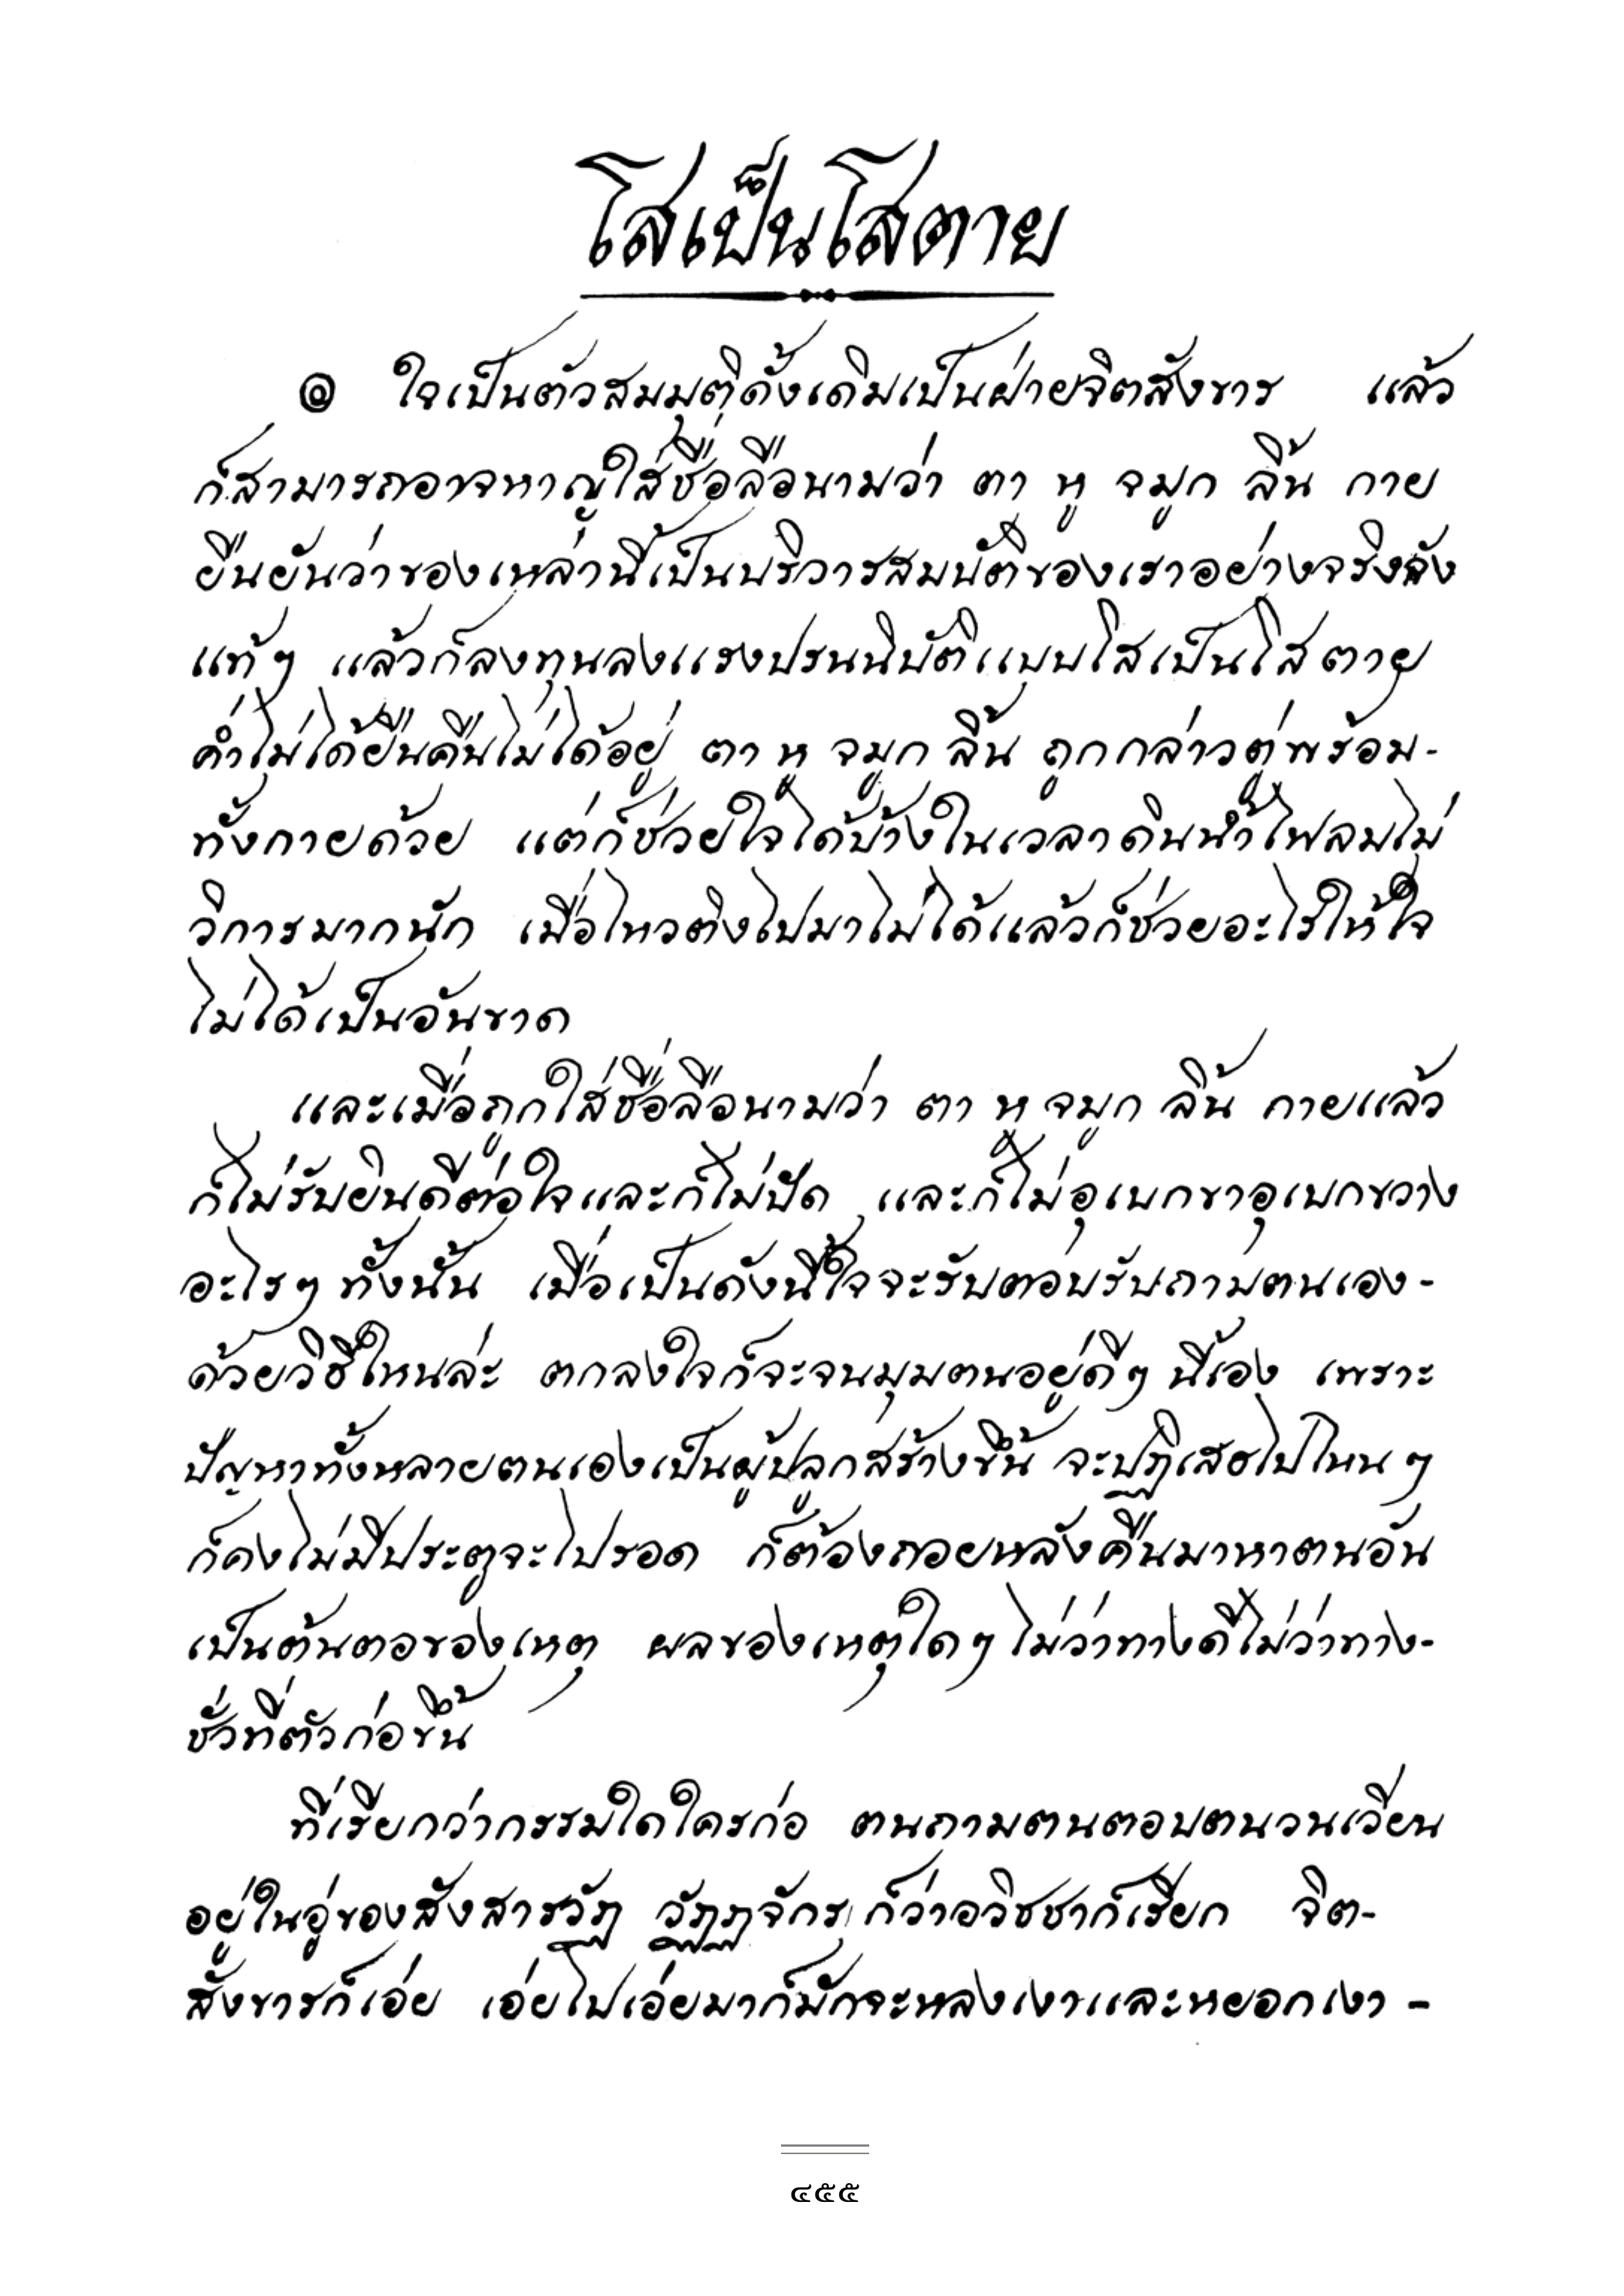 โสเป็นโสตาย
๏ ใจเป็นตัวสมมุติดั้งเดิมเป็นฝ่ายจิตสังขาร แล้ว
ก็สามารถอาจหาญใส่ชื่อลือนามว่า ตา หู จมูก ลิ้น กาย
ยืนยันว่าของเหล่านี้เป็นบริวารสมบัติของเราอย่างจริงจัง
แท้ๆ แล้วก็ลงทุนลงแรงปรนนิบัติแบบโสเป็นโสตาย
ค่ำไม่ได้ยืนคืนไม่ได้อยู่ ตา หู จมูก ลิ้น ถูกกล่าวตู่พร้อม-
ทั้งกายด้วย แต่ก็ช่วยใจได้บ้างในเวลาดินน้ำไฟลมไม่
วิการมากนัก เมื่อไหวติงไปมาไม่ได้แล้วก็ช่วยอะไรให้ใจ
ไม่ได้เป็นอันขาด
และเมื่อถูกใส่ชื่อลือนามว่า ตา หู จมูก ลิ้น กายแล้ว
ก็ไม่รับยินดีต่อใจและก็ไม่ปัด และก็ไม่อุเบกขาอุเบกขวาง
อะไรๆ ทั้งนั้น เมื่อเป็นดังนี้ใจจะรับตอบรับถามตนเอง-
ด้วยวิธีไหนล่ะ ตกลงใจก็จะจนมุมตนอยู่ดีๆ นี้เอง เพราะ
ปัญหาทั้งหลายตนเองเป็นผู้ปลูกสร้างขึ้น จะปฏิเสธไปไหนๆ
ก็คงไม่มีประตูจะไปรอด ก็ต้องถอยหลังคืนมาหาตนอัน
เป็นต้นตอของเหตุ ผลของเหตุใดๆ ไม่ว่าทางดีไม่ว่าทาง-
ชั่วที่ตัวก่อขึ้น
ที่เรียกว่ากรรมใดใครก่อ ตนถามตนตอบตนวนเวียน
อยู่ในอู่ของสังสารวัฏ วัฏฏจักร ก็ว่าอวิชชาก็เรียก จิต-
สังขารก็เอ่ย เอ่ยไปเอ่ยมาก็มักจะหลงเงาและหยอกเงา-
๔๕๕